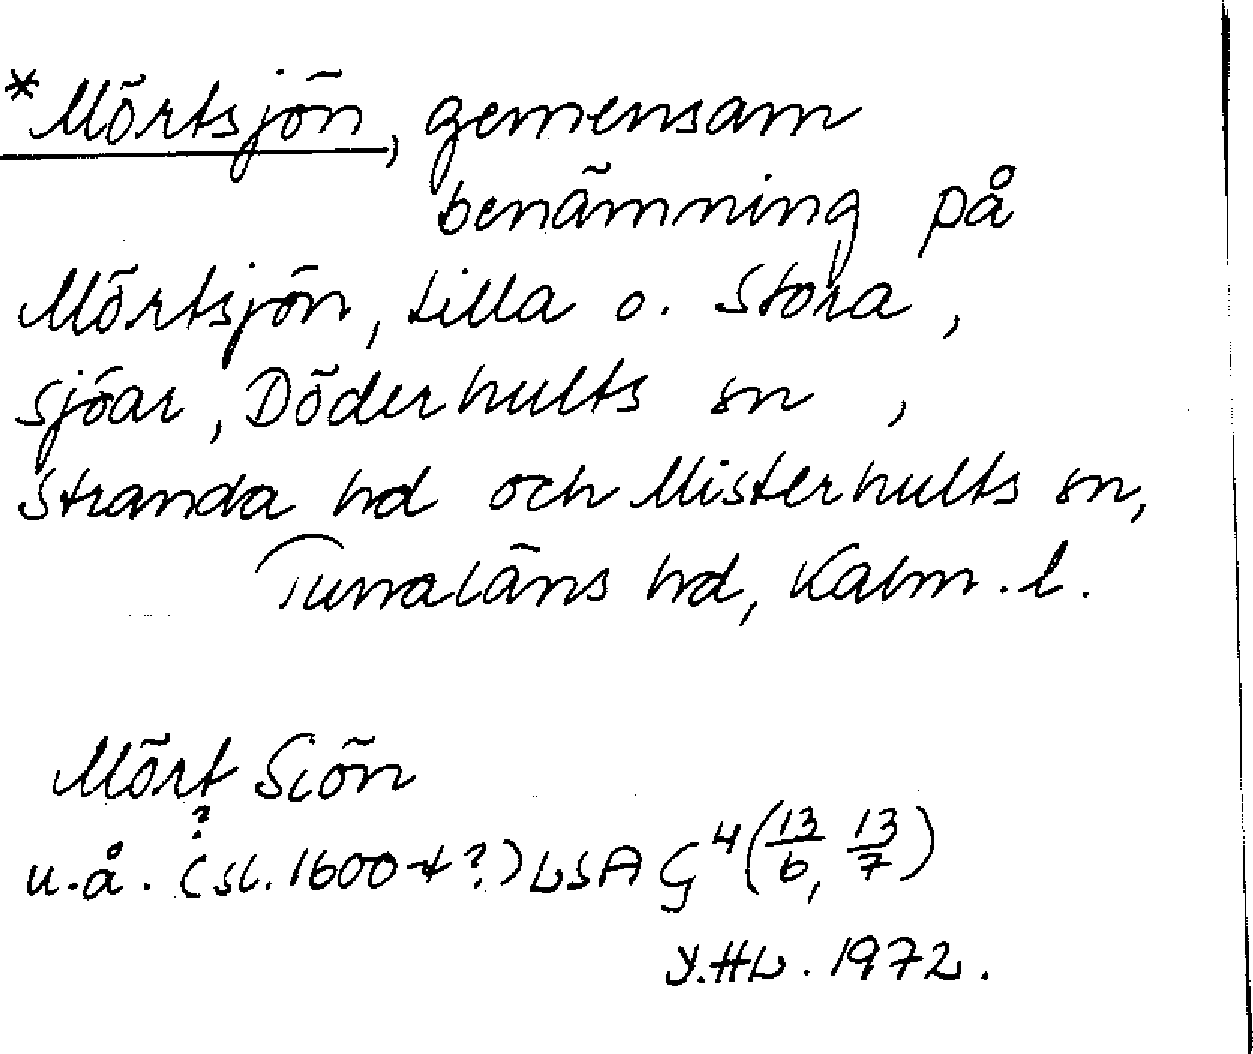 *Mörtsjön, gemensam
benämning på
Mörtsjön, Lilla o. Stora,
sjöar, Döderhults sn ,
Stranda hd och Misterhults sn,
Tunaläns hd, Kalm. l.
Mört Siön
?
u.å. (sl. 1600-t?) LSA G4(13/6, 13/7)
Y.HL. 1972.